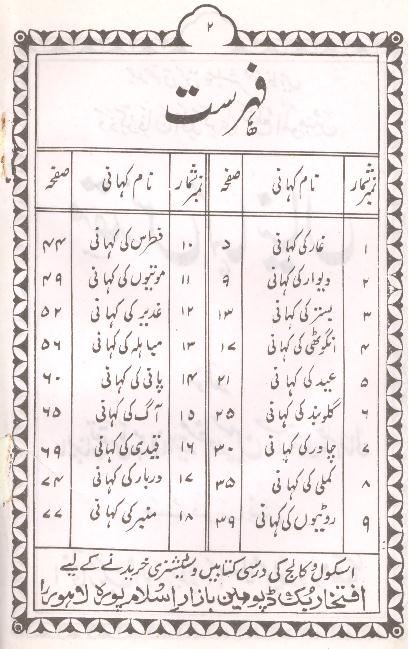 ۲
فہرست
نمبر شمار نام کہانی صفحہ نمبر شمار نام کہانی صفحہ
۱ غار کی کہانی ۵ ۱۰ فطرس کی کہانی ۴۴
۲ دیوار کی کہانی ۹ ۱۱ موتیوں کی کہانی ۴۹
۳ بستر کی کہانی ۱۳ ۱۲ غدیر کی کہانی ۵۲
۴ انگوٹھی کی کہانی ۱۷ ۱۳ مباہلہ کی کہانی ۵۶
۵ عید کی کہانی ۲۱ ۱۴ پانی کی کہانی ۶۰
۶ گلوبند کی کہانی ۲۵ ۱۵ آگ کی کہانی ۶۵
۷ چادر کی کہانی ۳۰ ۱۶ قیدی کی کہانی ۶۹
۸ کملی کی کہانی ۳۵ ۱۷ دربار کی کہانی ۷۴
۹ روٹیوں کی کہانی ۳۹ ۱۸ منبر کی کہانی ۷۷
اسکول و کالج کی درسی کتابیں و سٹیشنری خریدنے کے لیے
افتخار بک ڈپو مین بازار اسلام پورہ لاہور ۱